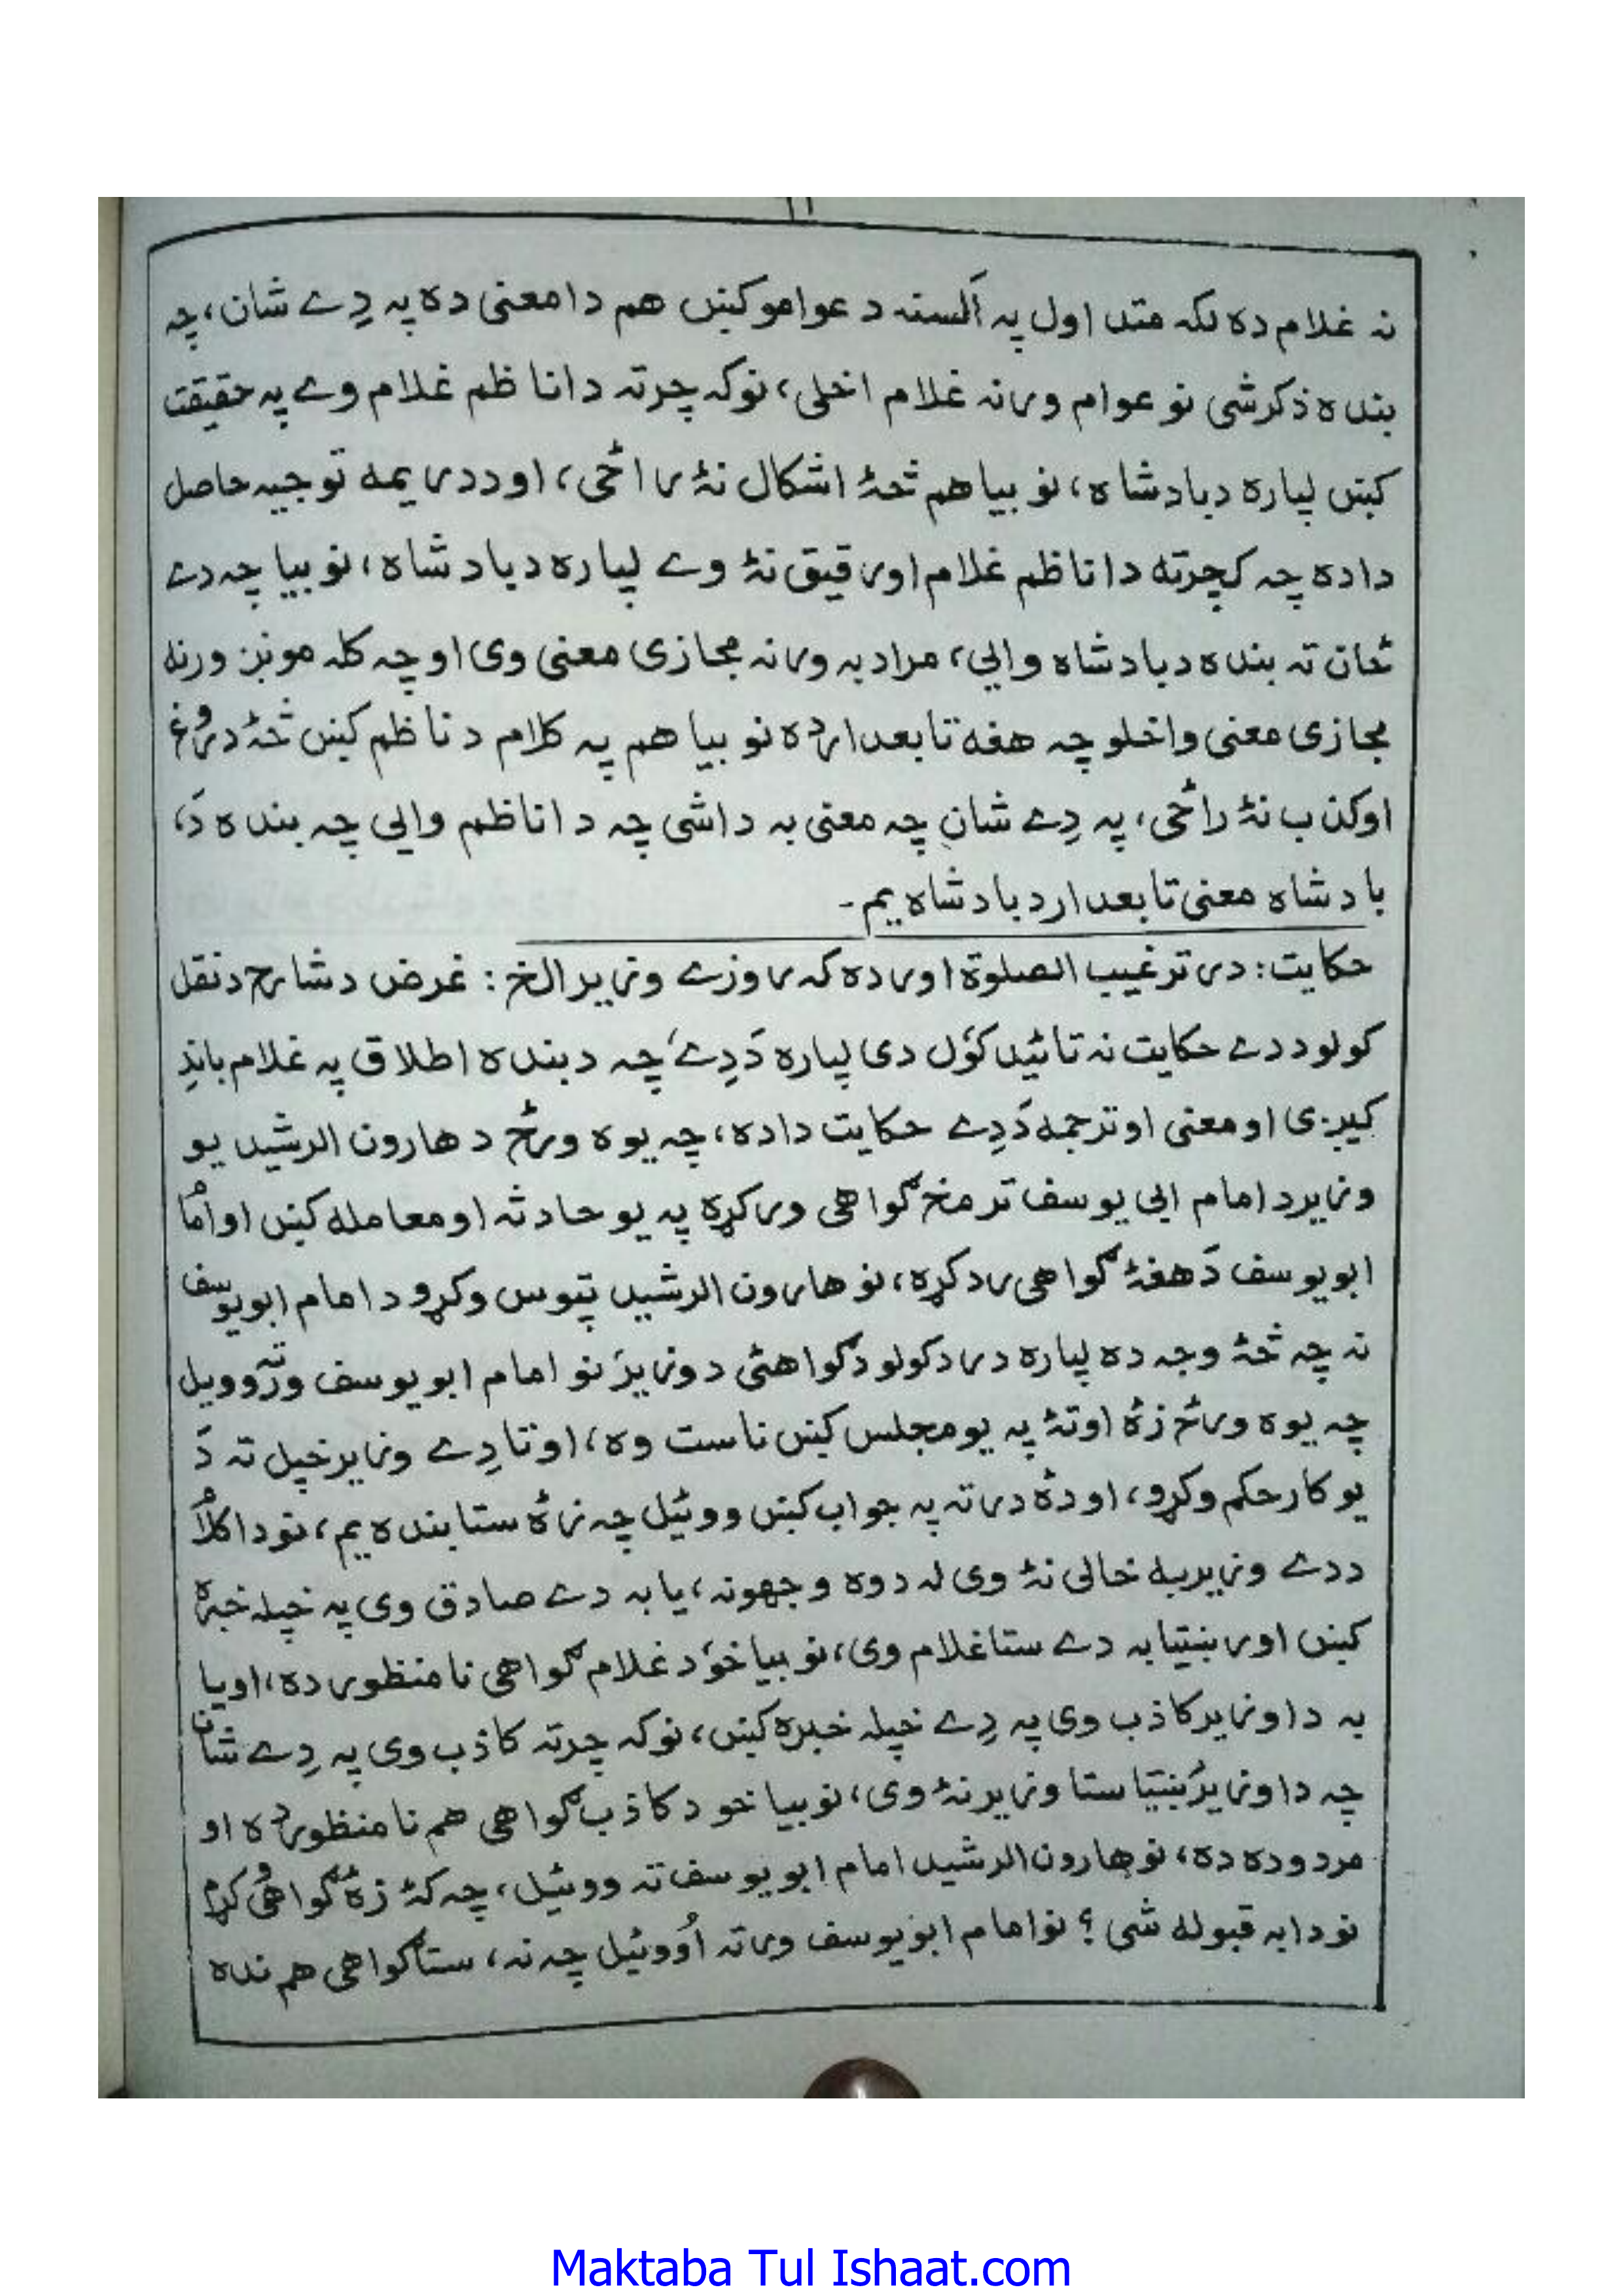 ١١
نہ غلام دہ لکہ متد اول پہ اَلسنہ د عوامو کښں هم دا معنی دہ پہ دِے شان، چہ
بندہ ذکر شی نو عوام ورنہ غلام اخلی، نو کہ چرتہ دا ناظم غلام وے پہ حقیقت
کښں لپارہ د بادشاہ، نو بیا هم څۂ اشکال نۂ راځی، او د دریمه توجیہ حاصل
دا دہ چہ کچرتہ دا ناظم غلام او رقیق نۂ وے لپارہ د بادشاہ، نو بیا چہ دے
ځان تہ بندہ د بادشاہ وائی، مراد بہ ورنہ مجازی معنی وی او چہ کلہ مونږ ورنہ
مجازی معنی واخلو چہ هغه تابعدار دہ نو بیا هم پہ کلام د ناظم کښں څۂ دروغ
او کذب نۂ راځی، پہ دِے شان چہ معنی بہ دا شی چہ دا ناظم وائی چہ بندہ دَ،
بادشاہ معنی تابعدار د بادشاہ یم۔
حکایت: در ترغیب الصلوٰة اورده کہ روزے وزیر الخ: غرض د شارح د نقل
کولو د دے حکایت نہ تائید کوَل دی لپارہ دَدِے چہ د بندہ اطلاق پہ غلام باندِ
کیږی او معنی او ترجمه دَدِے حکایت دا دہ، چہ یوہ ورځ د هارون الرشید یو
وزیر د امام ابی یوسف تر مخ گواهی ورکړہ پہ یو حادثہ او معاملہ کښں او امام
ابو یوسف دَهغۂ گواهی رد کړہ، نو هارون الرشید تپوس وکړو د امام ابو یوسف
نہ چہ څۂ وجہ دہ لپارہ د رد کولو د گواهئی د وزیر نو امام ابو یوسف ورتہ وویل
چہ یوہ ورځ زۂ او تۂ پہ یو مجلس کښں ناست وہ، او تا دِے وزیر خپل تہ دَ
یو کار حکم وکړو، او دۂ درتہ پہ جواب کښں ووئیل چہ زۂ ستا بندہ یم، نو دا کلام
د دے وزیر بہ خالی نۂ وی لہ دوہ وجهونہ، یا بہ دے صادق وی پہ خپلہ خبرہ
کښں او رښتیا بہ دے ستا غلام وی، نو بیا خوَ د غلام گواهی نا منظور دہ، او یا
بہ دا وزیر کاذب وی پہ دِے خپلہ خبرہ کښں، نو کہ چرتہ کاذب وی پہ دِے شان
چہ دا وزیر رښتیا ستا وزیر نۂ وی، نو بیا خو د کاذب گواهی هم نا منظور دہ او
مردودہ دہ، نو هارون الرشید امام ابو یوسف تہ ووئیل، چہ کۂ زۂ گواهی وکړم
نو دا بہ قبولہ شی؟ نو امام ابو یوسف ورتہ اُووئیل چہ نہ، ستا گواهی هم ندہ
Maktaba Tul Ishaat.com